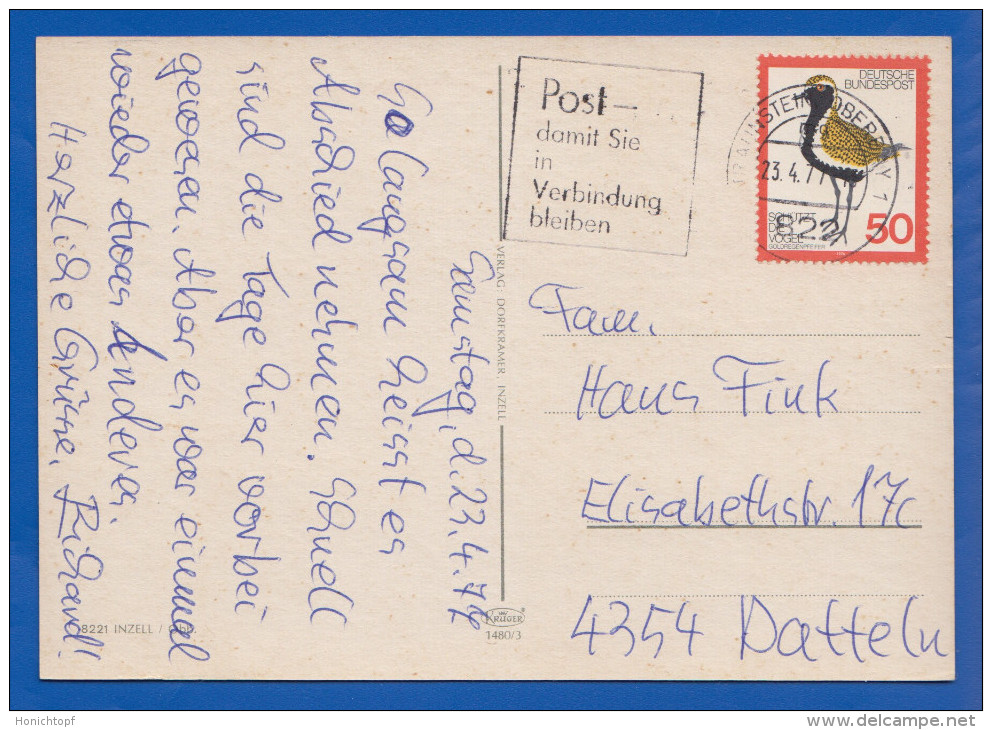 Samstag, d. 23.4.77
So langsam heisst es
Abschied nehmen. Schnell
sind die Tage hier vorbei
gewesen. Aber es war einmal
wieder etwas Anderes.
Herzliche Grüsse, Richard!
Post –
damit Sie
in
Verbindung
bleiben
DEUTSCHE
BUNDESPOST
23.4.77
822
SCHÜTZT
DIE
VÖGEL
GOLDREGENPFEIFER
50
VERLAG: DORFKRAMER, INZELL
Fam.
Hans Fink
Elisabethstr. 17c
4354 Datteln
KRÜGER
1480/3
8221 INZELL / Obb.
Honichtopf
delcampe.net